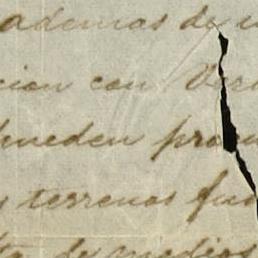 ademas de
cion con Ver
pueden pro
s terrenos fu
de medios